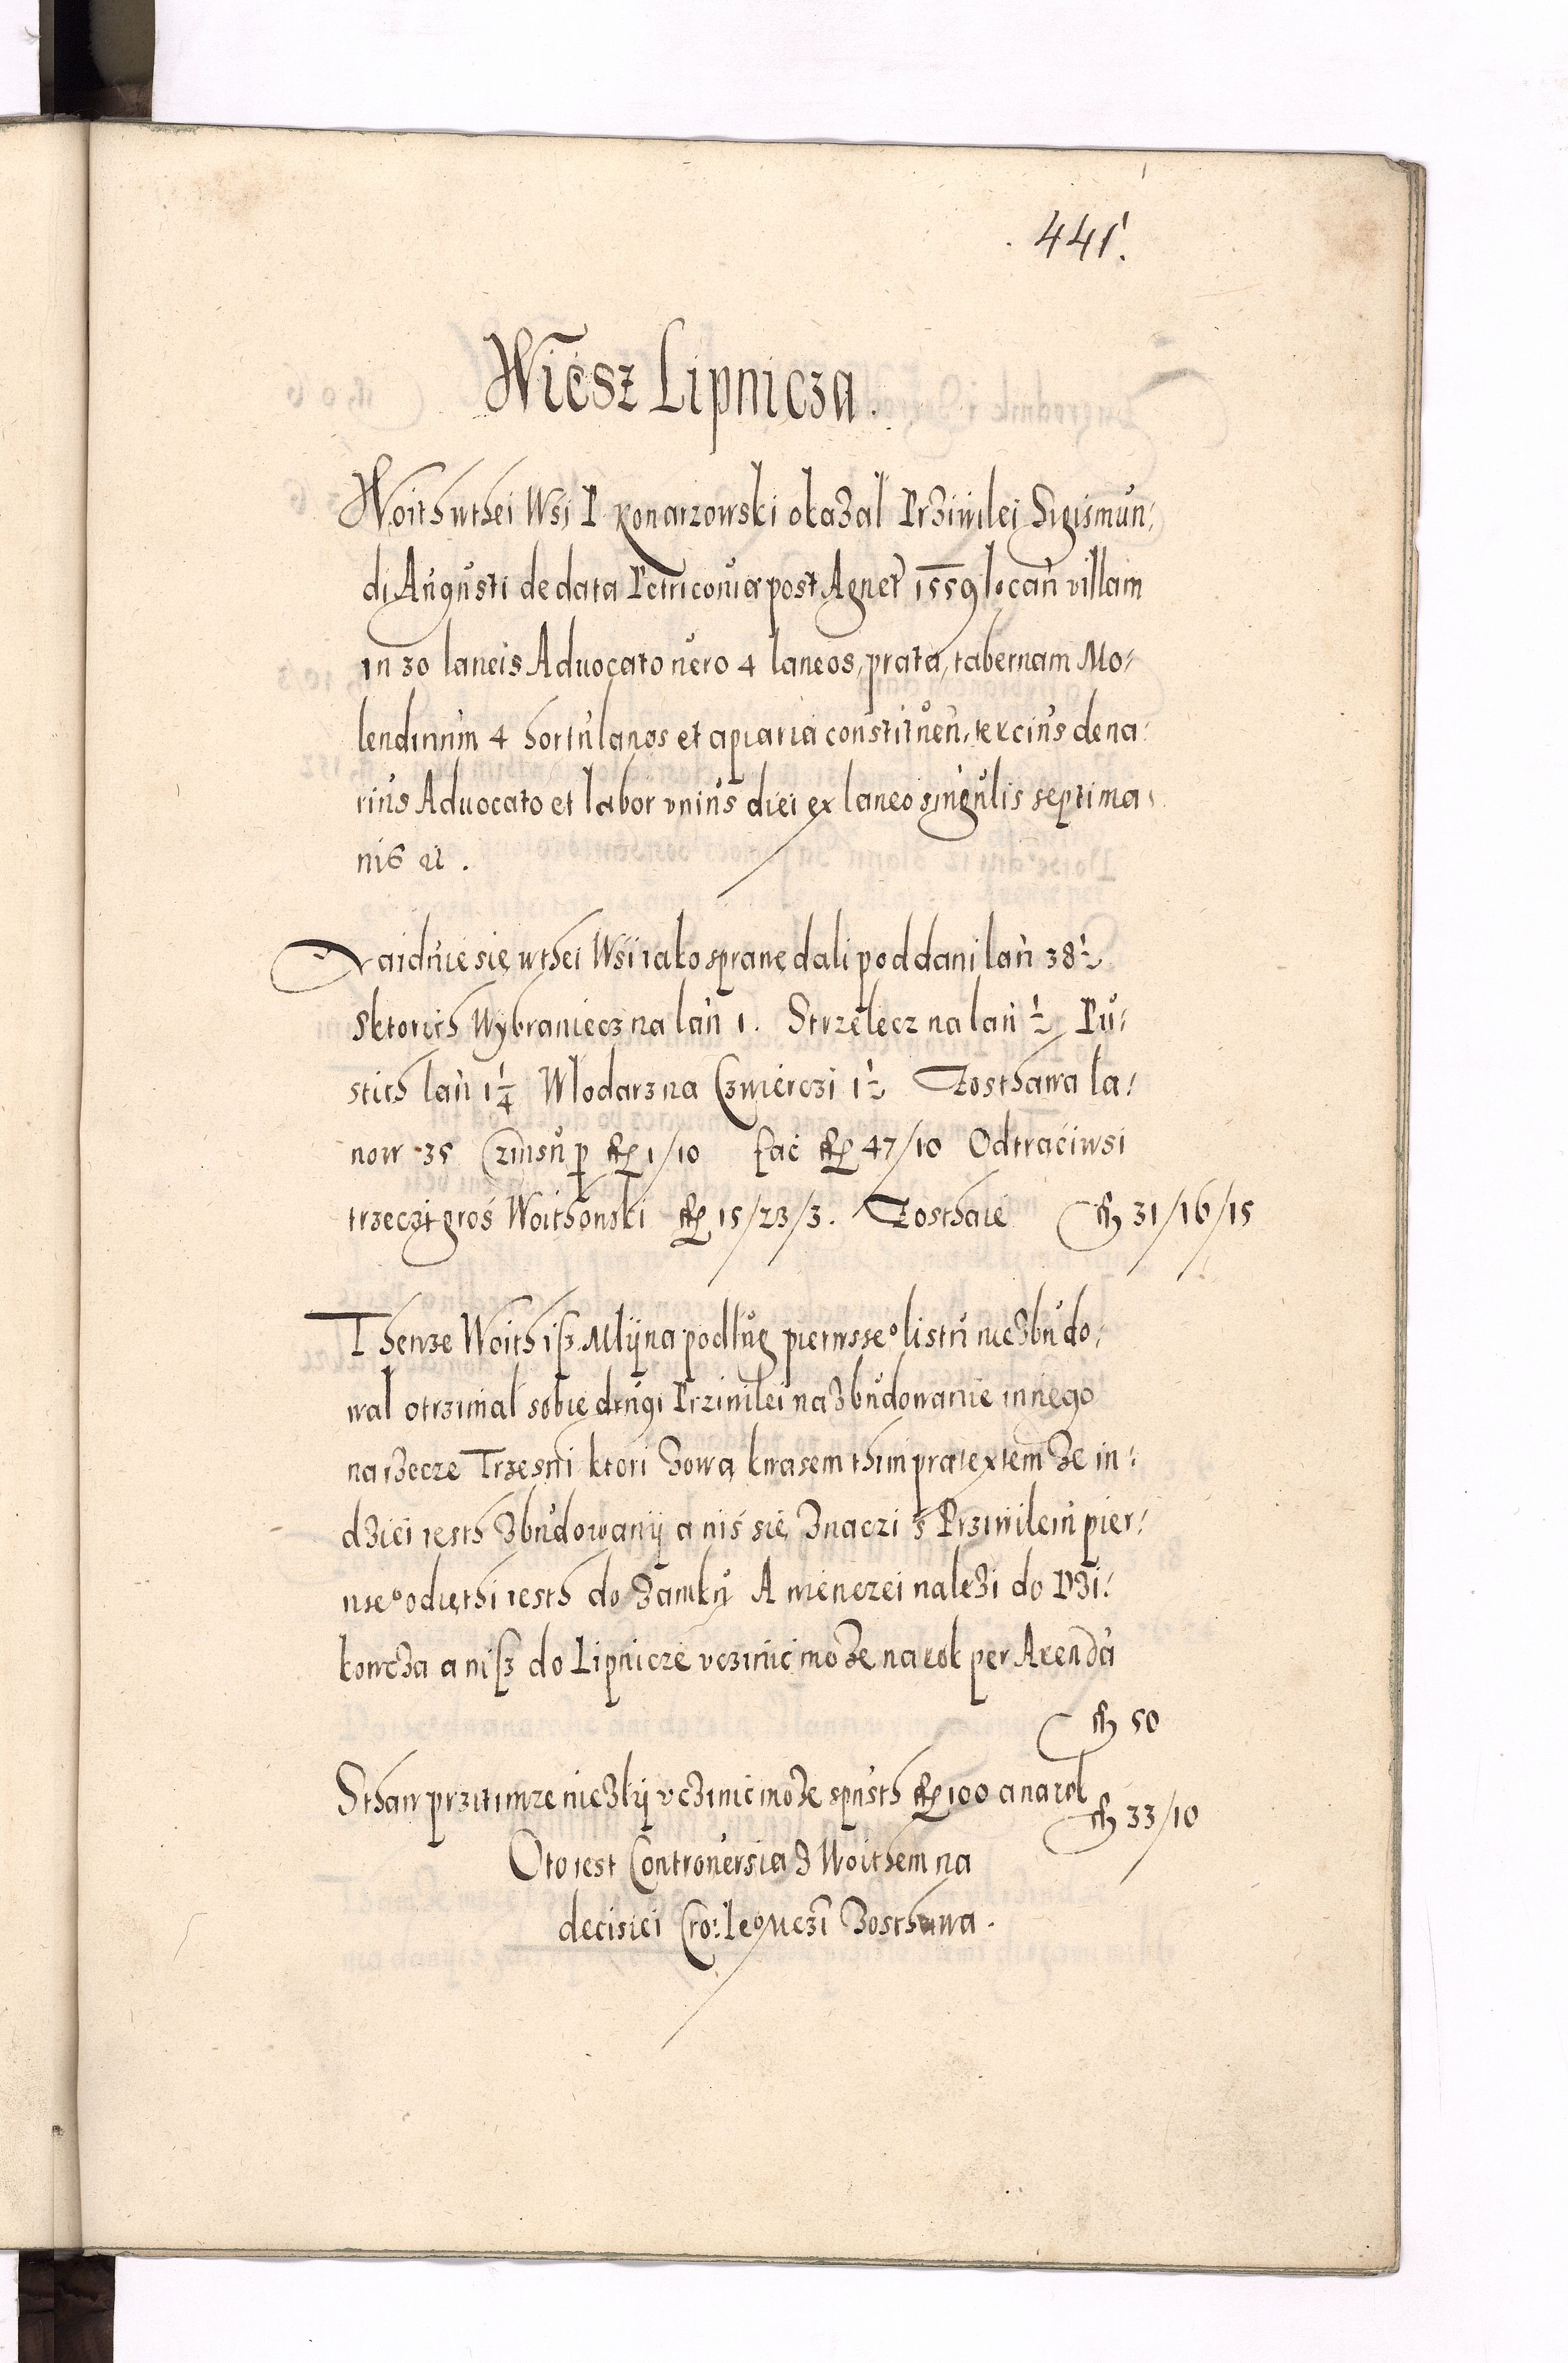 441.
Wiesz Lipnicza.
Woith wthei Wsi P Konarzowski okazal Prziwilei Sigismun:
di Augusti de data Petricouiæ post Agnet 1559 locan villam
in 30 laneis Aduocato uero 4 laneos, prata, tabernam Mo:
lendinum 4 hortulanos et apiaria constituen, tercius dena:
rius Aduocato et labor vnius diei ex laneo singulis septima:
nis
Naiduie się wthei Wsi iako sprawę dali poddani lan 38 1/2
sktorich Wybraniecz na lan 1. Strzelecz na lan 1/2 Pu:
stich lan 1 1/4 Wlodarz na Czwierczi 1 1/2 Zosthawa la:
now 35 Czinsu p 1/10 fac 47/10 Odtraciwsi
trzeczi gros Woithowski 15/23/3. Zosthaie fl 31/16/15
Thenze Woith isz Mlÿna podług pierwsseº listu nie zbudo:
wal otrzimal sobie drugi Prziwilei na zbudowanie innego
na rzecze Trzesni ktori zową kwasem thim prætextem ze in:
dziei iesth zbudowanÿ a nis się znaczi s Prziwileiu pier:
wseº odięthi iesth do zamku A wienczei nalezi do Dzi:
kowcza a nisz do Lipnicze vczinic moze na rok per Arenda
fl 50
Sthaw przitimze niezlÿ vczinic moze spusth 100 a na rok
fl 33/10
Oto iest Controuersia z Woithem na
decisiei Cro: leº Mczi zosthawa.